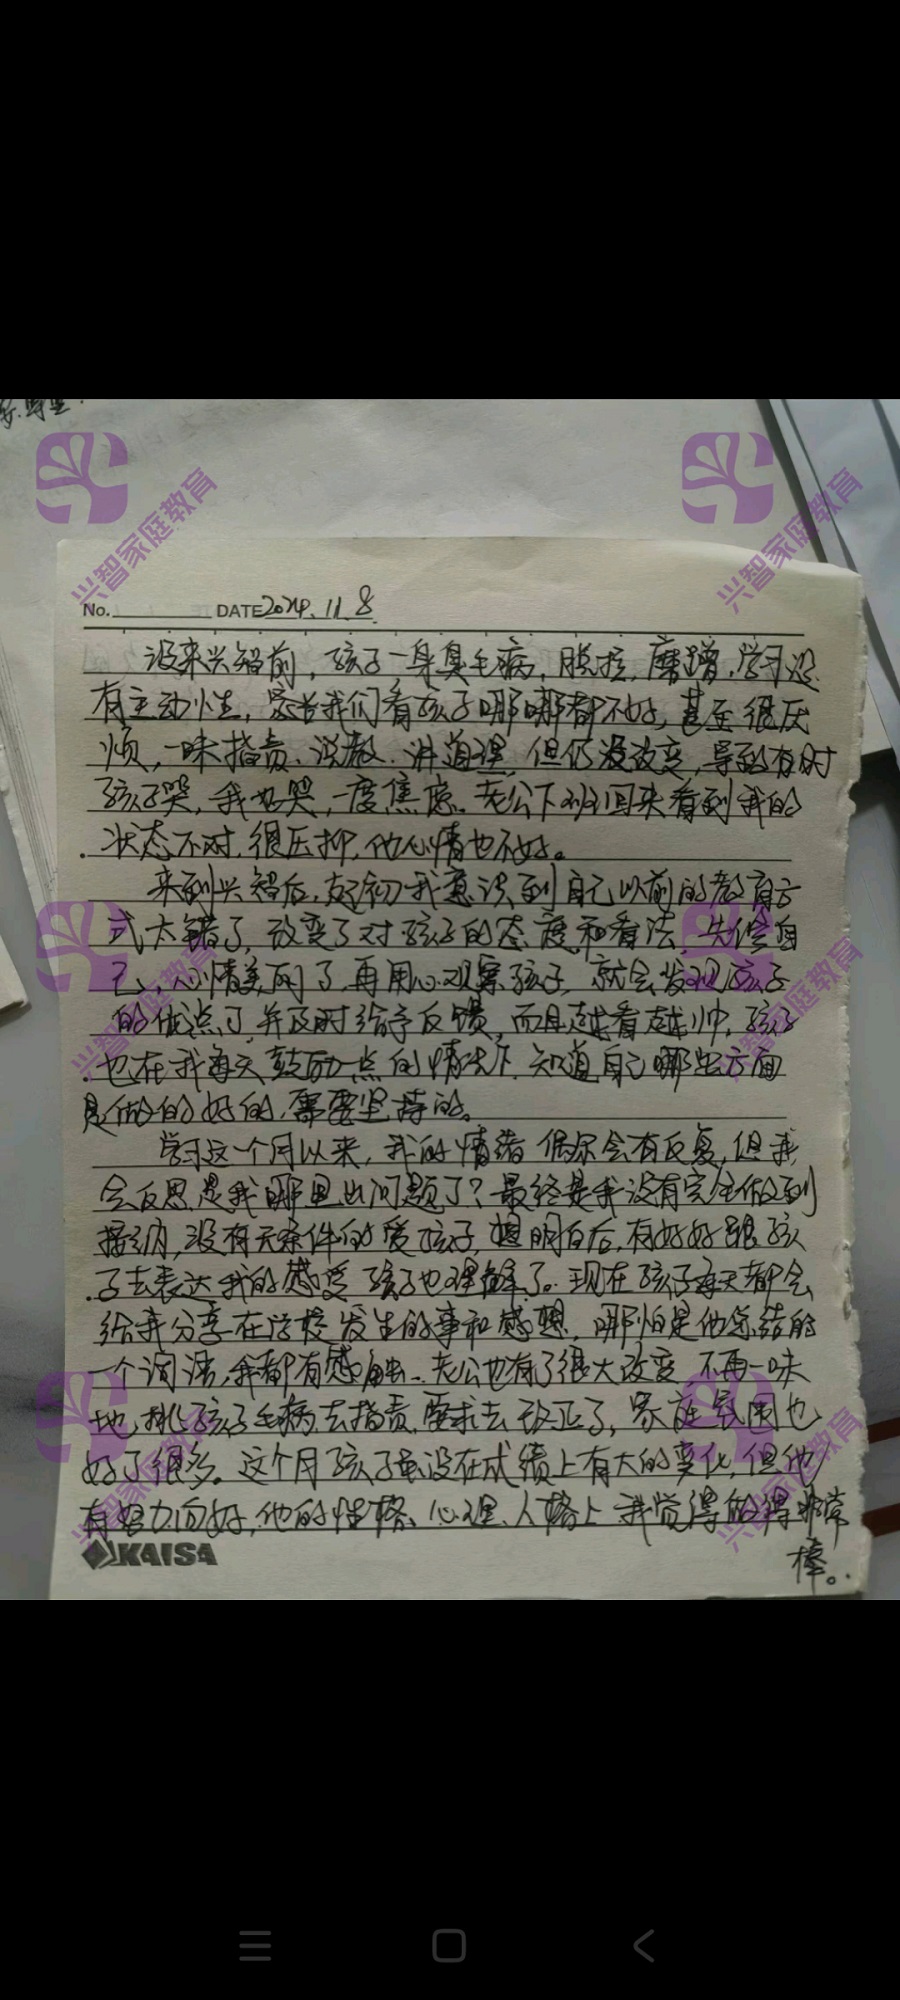 兴智家庭教育
兴智家庭教育
No. DATE 2024.11.8
没来兴智前，孩子一身臭毛病，脱拉，磨蹭，学习没
有主动性，家长我们看孩子哪哪都不好，甚至很厌
烦，一味指责、说教、讲道理，但仍没改变，导致有时
孩子哭，我也哭，一度焦虑。老公下班回来看到我的
状态不对，很压抑，他心情也不好。
来到兴智后，起初我意识到自己以前的教育方
式太错了，改变了对孩子的态度和看法，先修自
己，心情美丽了，再用心观察孩子，就会发现孩子
的优点了，并及时给予反馈，而且越看越帅，孩子
也在我每天鼓励一点的情况下，知道自己哪些方面
是做的好的，需要坚持的。
学习这个月以来，我的情绪偶尔会有反复，但我
会反思是我哪里出问题了？最终是我没有完全做到
接纳，没有无条件的爱孩子，想明白后，有好好跟孩
子去表达我的感受，孩子也理解了。现在孩子每天都会
给我分享在学校发生的事和感想，哪怕是他总结的
一个词语，我都有感触。老公也有了很大改变，不再一味
地挑孩子毛病去指责，要求去改正了，家庭氛围也
好了很多。这个月孩子虽没在成绩上有大的变化，但他
有努力向好，他的性格、心理、人格上我觉得做得非常
棒。
兴智家庭教育
兴智家庭教育
兴智家庭教育
兴智家庭教育
KAISA